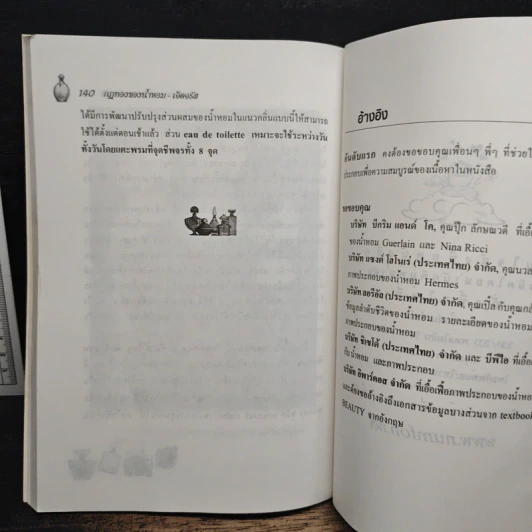 140 กฎทองของน้ำหอม - เจ็ดจรัส
ได้มีการพัฒนาปรับปรุงส่วนผสมของน้ำหอมในแนวกลิ่นแบบนี้ให้สามารถ
ใช้ได้ตั้งแต่ตอนเช้าแล้ว ส่วน eau de toilette เหมาะจะใช้ระหว่างวัน
ทั้งวันโดยแตะพรมที่จุดชีพจรทั้ง 8 จุด
อ้างอิง
อันดับแรก คงต้องขอขอบคุณเพื่อนๆ พี่ๆ ที่ช่วยใ
ประกอบเพื่อความสมบูรณ์ของเนื้อหาในหนังสือ
ขอขอบคุณ
บริษัท บีกริม แอนด์ โค, คุณปุ๊ก ลักษณวดี ที่เอื้
ของน้ำหอม Guerlain และ Nina Ricci
บริษัท แซงค์ โฮโนเร่ (ประเทศไทย) จำกัด, คุณนวล
ภาพประกอบของน้ำหอม Hermes
บริษัท ลอรีอัล (ประเทศไทย) จำกัด, คุณเปิ้ล กับคุณก
ข้อมูลลำดับชีวิตของน้ำหอม รายละเอียดของน้ำหอม
ภาพประกอบของน้ำหอม
บริษัท ชิเซโด้ (ประเทศไทย) จำกัด และ บีพีไอ ที่เอื้อ
กับน้ำหอม และภาพประกอบ
บริษัท อิพาร์คอส จำกัด ที่เอื้อเฟื้อภาพประกอบของน้ำหอ
และต้องขออ้างอิงถึงเอกสารข้อมูลบางส่วนจาก textbook
BEAUTY จากอังกฤษ